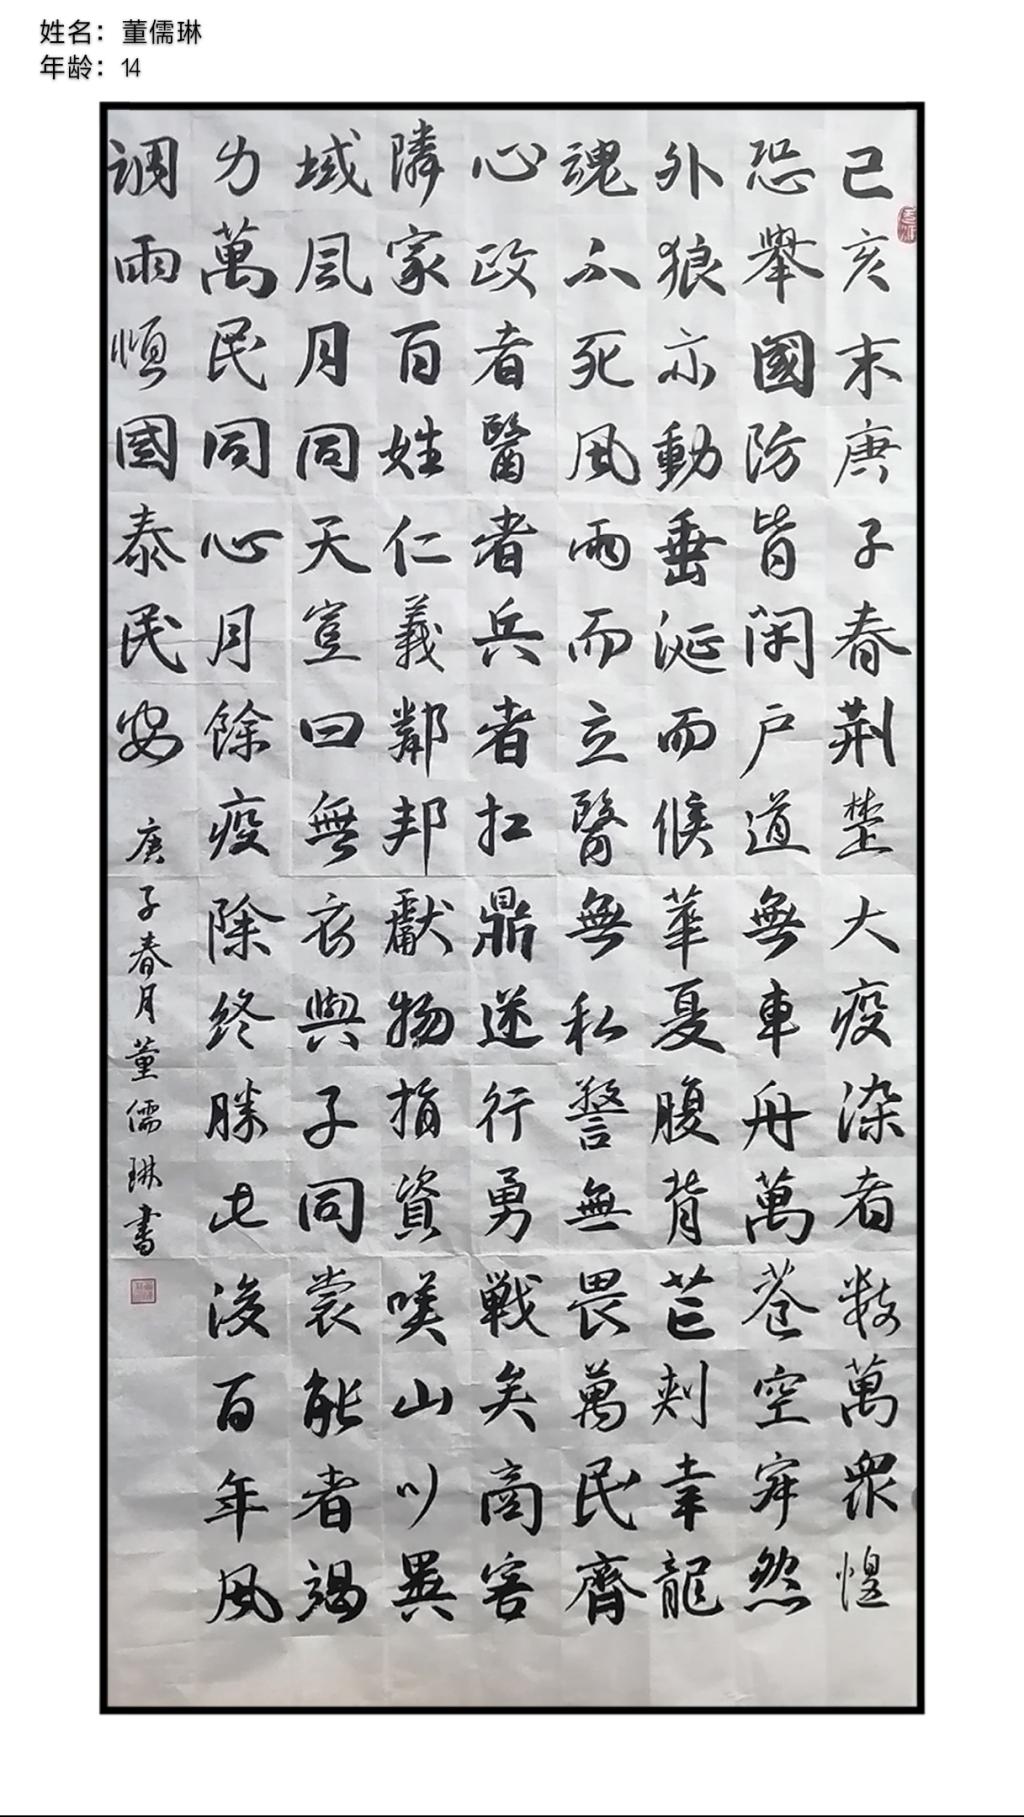 姓名：董儒琳
年龄：14
己亥末庚子春荆楚大疫染者数萬衆惶
恐舉國防皆闭户道無車舟萬苍空寂然
外狼亦動垂涎而候華夏腹背芒刺幸龍
魂不死風雨而立醫無私警無畏萬民齊
心政者醫者兵者扛鼎逆行勇戦矣商客
隣家百姓仁義鄰邦獻物捐資嘆山川異
域風月同天豈曰無衣與子同裳能者竭
力萬民同心月餘疫除终勝此後百年風
调雨順國泰民安
庚子春月董儒琳書